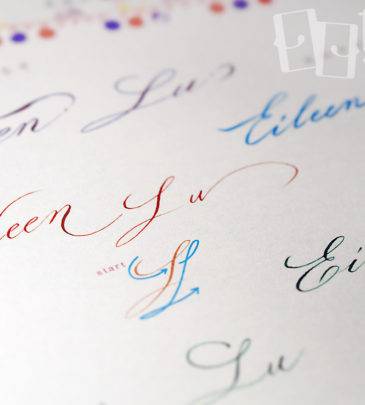 en Lu
Eileen
een Lu
start
Ei
Lu